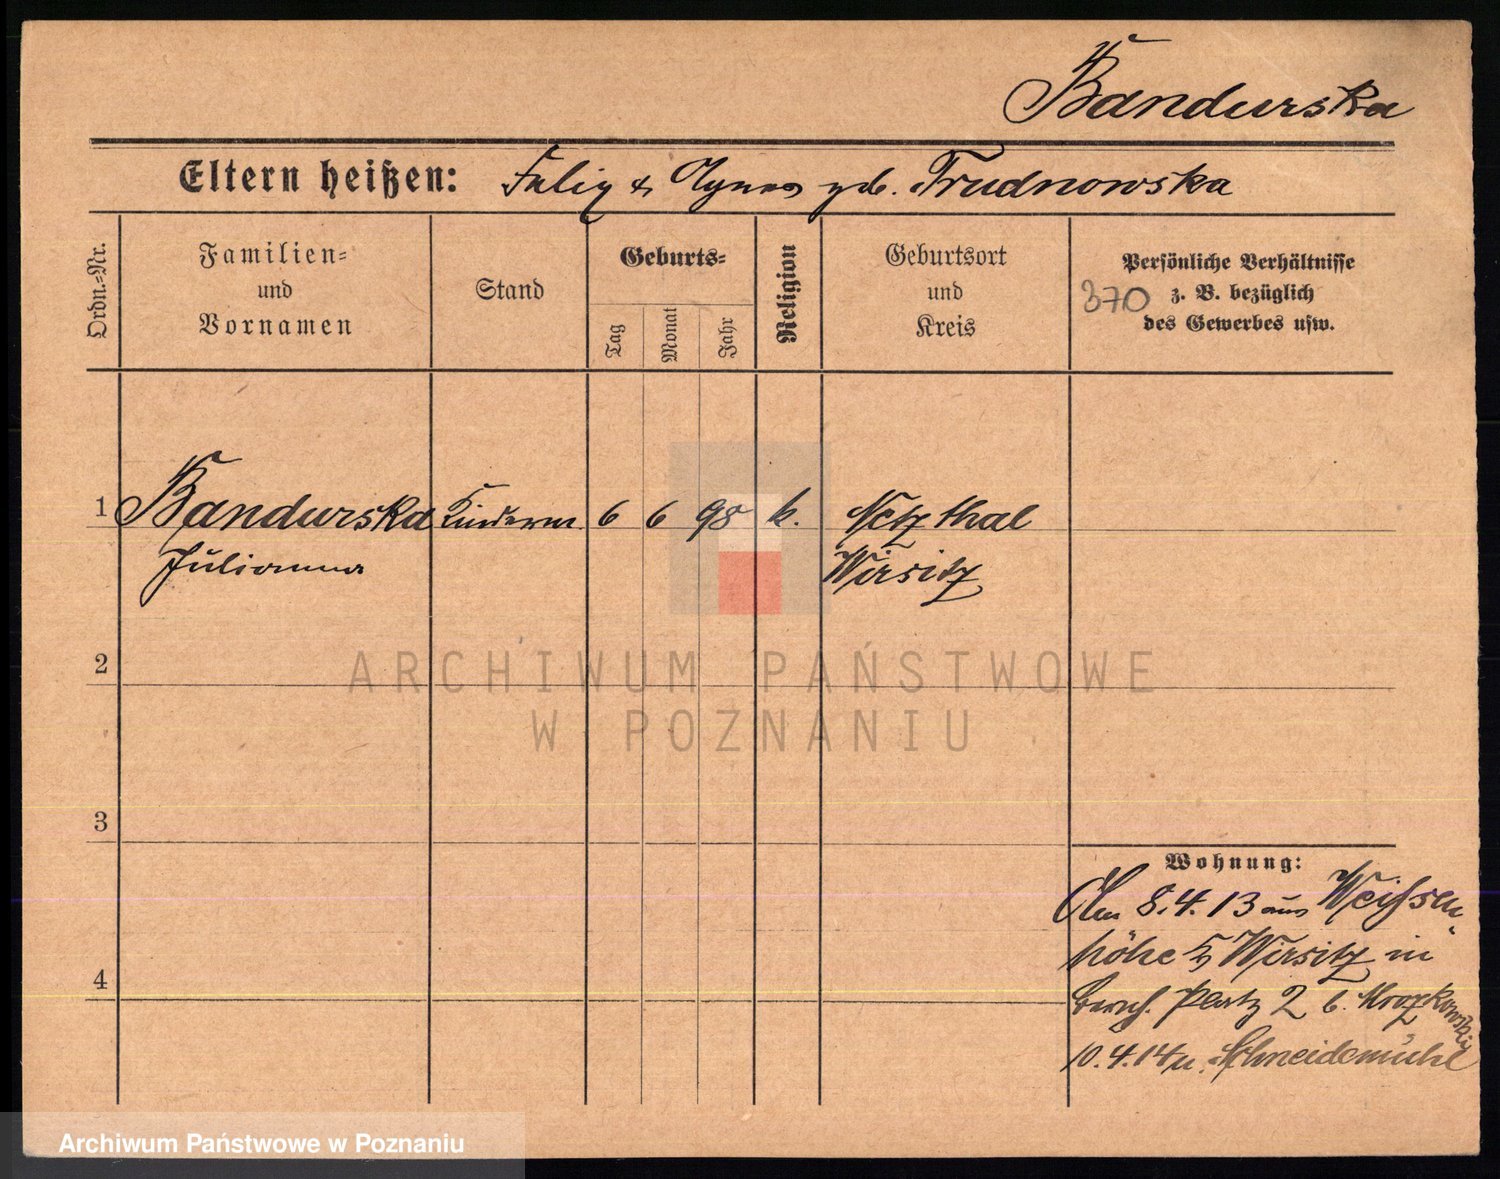 Bandurska
Eltern heißen: Felix & Agnes geb. Trudnowska
Ordn.-Nr.
Familien-
und
Vornamen
Stand
Geburts-
Tag
Monat
Jahr
Religion
Geburtsort
und
Kreis
Persönliche Verhältnisse
370 z. B. bezüglich
des Gewerbes usw.
1 Bandurska Kinderm. 6 6 98 k. Netzthal
Julianna Wirsitz
2
ARCHIWUM PAŃSTWOWE
W POZNANIU
3
Wohnung:
Am 8.4.13 aus Weissen
höhe Wirsitz in
4
Platz 2 b. Mrozkowski
10.4.14 n. Schneidemühl
Archiwum Państwowe w Poznaniu